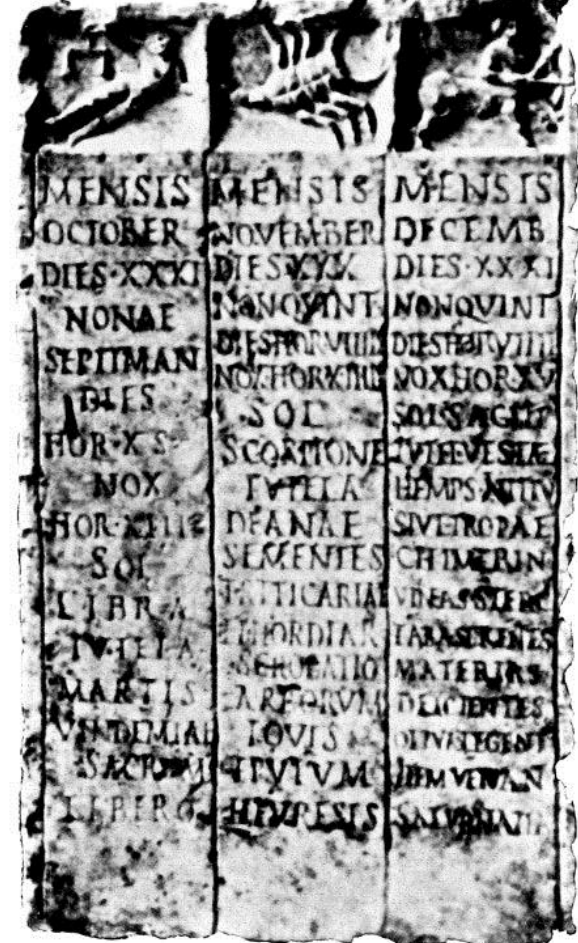 MENSIS
OCTOBER
DIES·XXXI
NONAE
SEPTIMAN
DIES
HOR·X S
NOX
HOR·XIII
SOL
LIBRA
TVTELA
MARTIS
VINDEMIAE
SACRVM
LIBERO
MENSIS
NOVEMBER
DIES XXX
NON QVINT
DIES HOR VIIII
NOX HOR XIIII
SOL
SCORPIONE
TVTELA
DEANAE
SEMENTES
TRITICARIAE
ET HORDIAR
SCROBATIO
ARBORVM
IOVIS
EPVLVM
HEVRESIS
MENSIS
DECEMB
DIES·XXXI
NON QVINT
DIES HOR VIIII
NOX HOR XV
SOL SAGIT
TVTEL VESTAE
HIEMPS INITIV
SIVE TROPAE
CHIMERIN
VINEAS STERC
FABA SERENTES
MATERIAS
DEICIENTES
OLIVA LEGENT
ITEM VENAN
SATVRNALIA